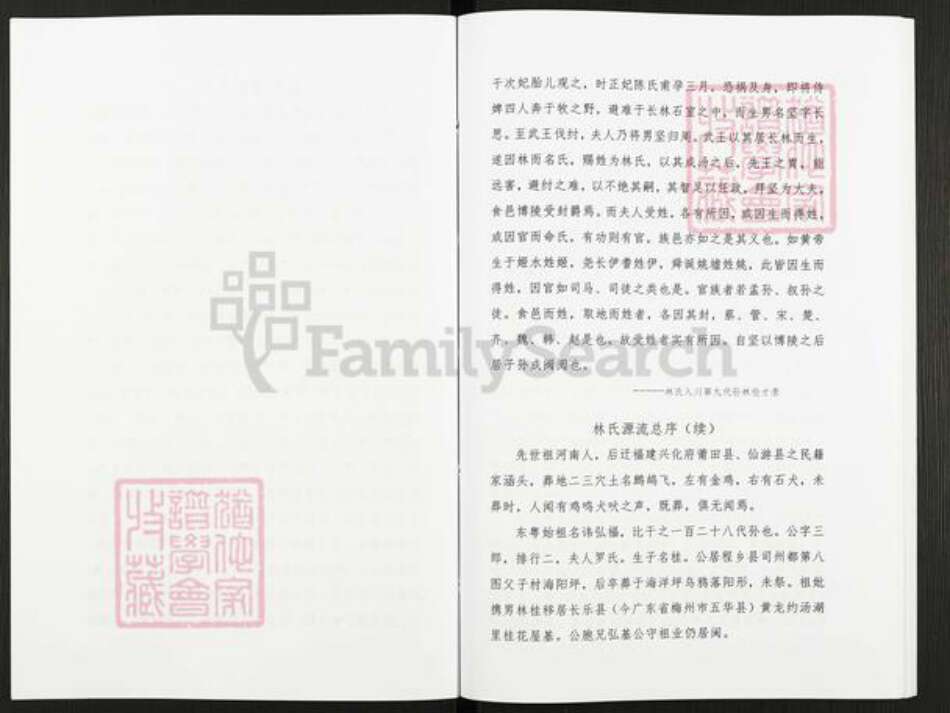 于次妃胎儿观之，时正妃陈氏甫孕三月，恐祸及身，即将侍
婢四人奔于牧之野，避难于长林石室之中，而生男名坚字长
思。至武王伐纣，夫人乃将男坚归周。武王以其居长林而生，
遂因林而名氏，赐姓为林氏，以其成汤之后，先王之胄，能
远害，避纣之难，以不绝其嗣，其智足以任政，拜坚为大夫，
食邑博陵受封爵焉。而夫人受姓，各有所因，或因生而得姓，
或因官而命氏，有功则有官，族邑亦如之是其义也。如黄帝
生于姬水姓姬，尧长伊耆姓伊，舜诞姚墟姓姚，此皆因生而
得姓，因官如司马、司徒之类也是。官族者若孟孙、叔孙之
徒。食邑而姓，取地而姓者，各因其封，蔡、管、宋、楚、
齐、魏、韩、赵是也。故受姓者实有所因。自坚以博陵之后
居子孙成阀阅也。
林氏入川第九代孙林
林氏源流总序（续）
先世祖河南人，后迁福建兴化府莆田县、仙游县之民籍
家涵头，葬地二三穴土名鹧鸪飞，左有金鸡，右有石犬，未
葬时，人闻有鸡鸣犬吠之声，既葬，俱无闻焉。
东粤始祖名讳弘福，比干之一百二十八代孙也。公字三
郎，排行二，夫人罗氏。生子名桂。公居程乡县司州都第八
图父子村海阳坪，后卒葬于海洋坪乌鸦落阳形，未祭。祖妣
携男林桂移居长乐县（今广东省梅州市五华县）黄龙约汤湖
里桂花屋基。公胞兄弘基公守祖业仍居闽。
FamilySearch